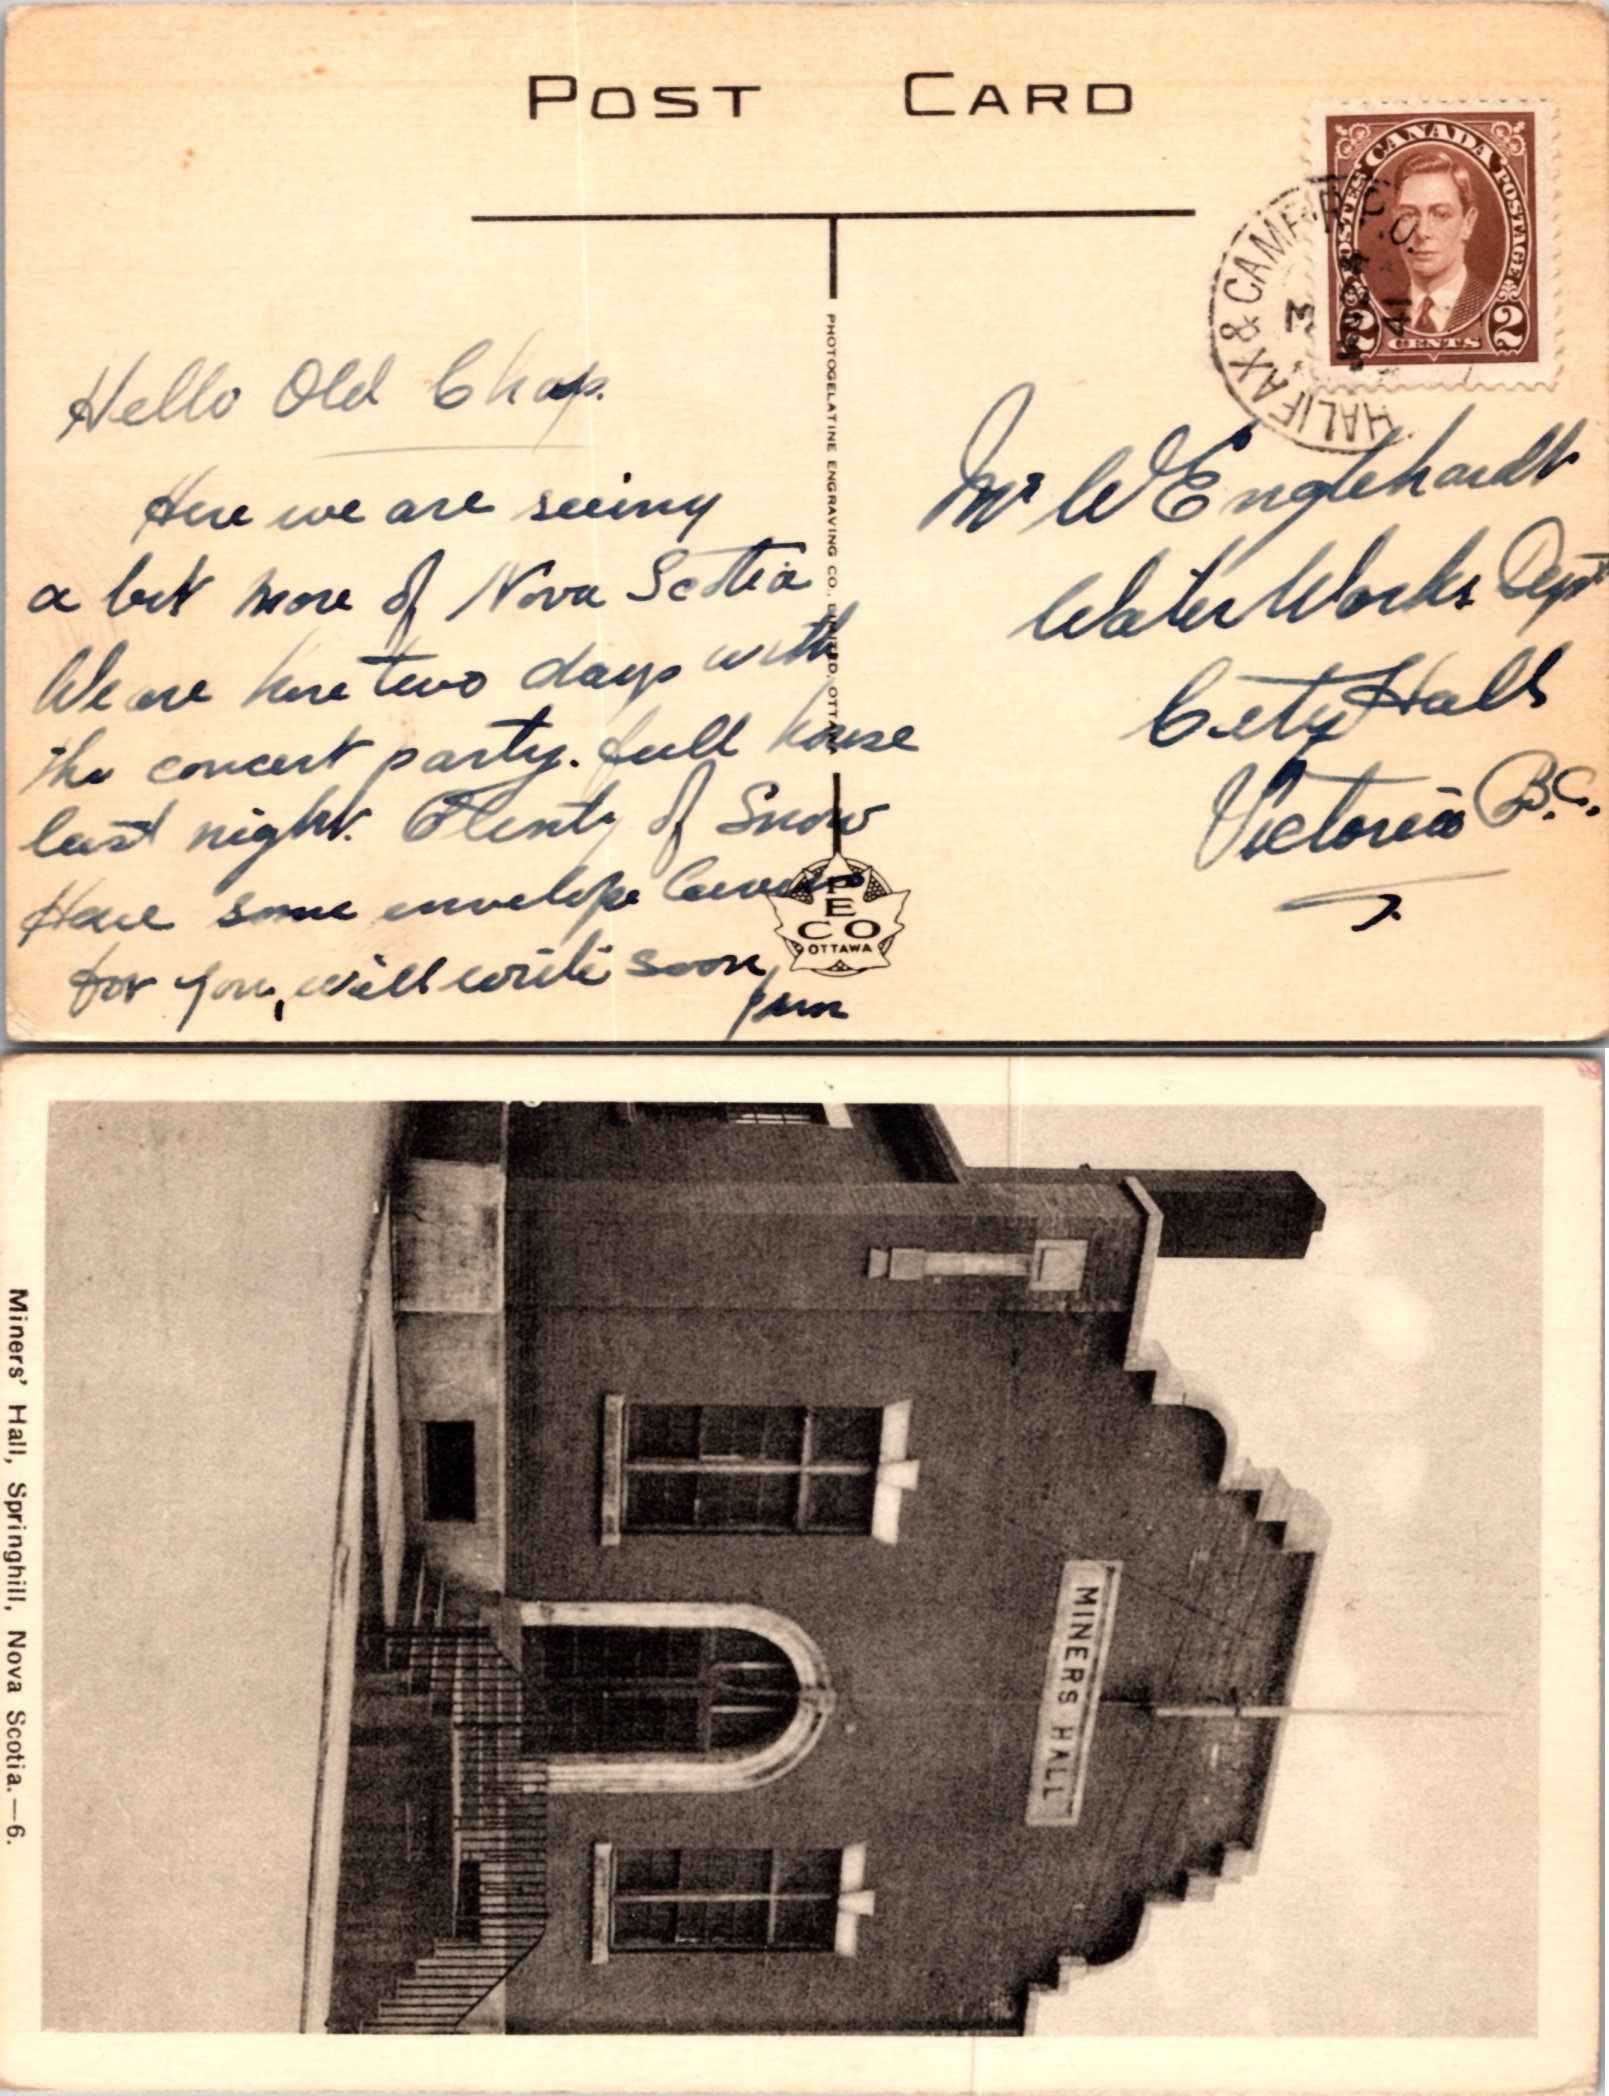 POST CARD
CANADA
POSTES POSTAGE
2 CENTS 2
HALIFAX & CAMP
3
41
PHOTOGELATINE ENGRAVING CO. LIMITED. OTTAWA
Hello Old Chap.
Here we are seeing
a bit more of Nova Scotia
We are here two days with
the concert party. full house
last night. Plenty of Snow
Have some envelope
for you, will write soon,
Jim
Mr W Englehardt
Water Works Dept
City Hall
Victoria B.C.
PE
CO
OTTAWA
MINERS HALL
Miners' Hall, Springhill, Nova Scotia.—6.